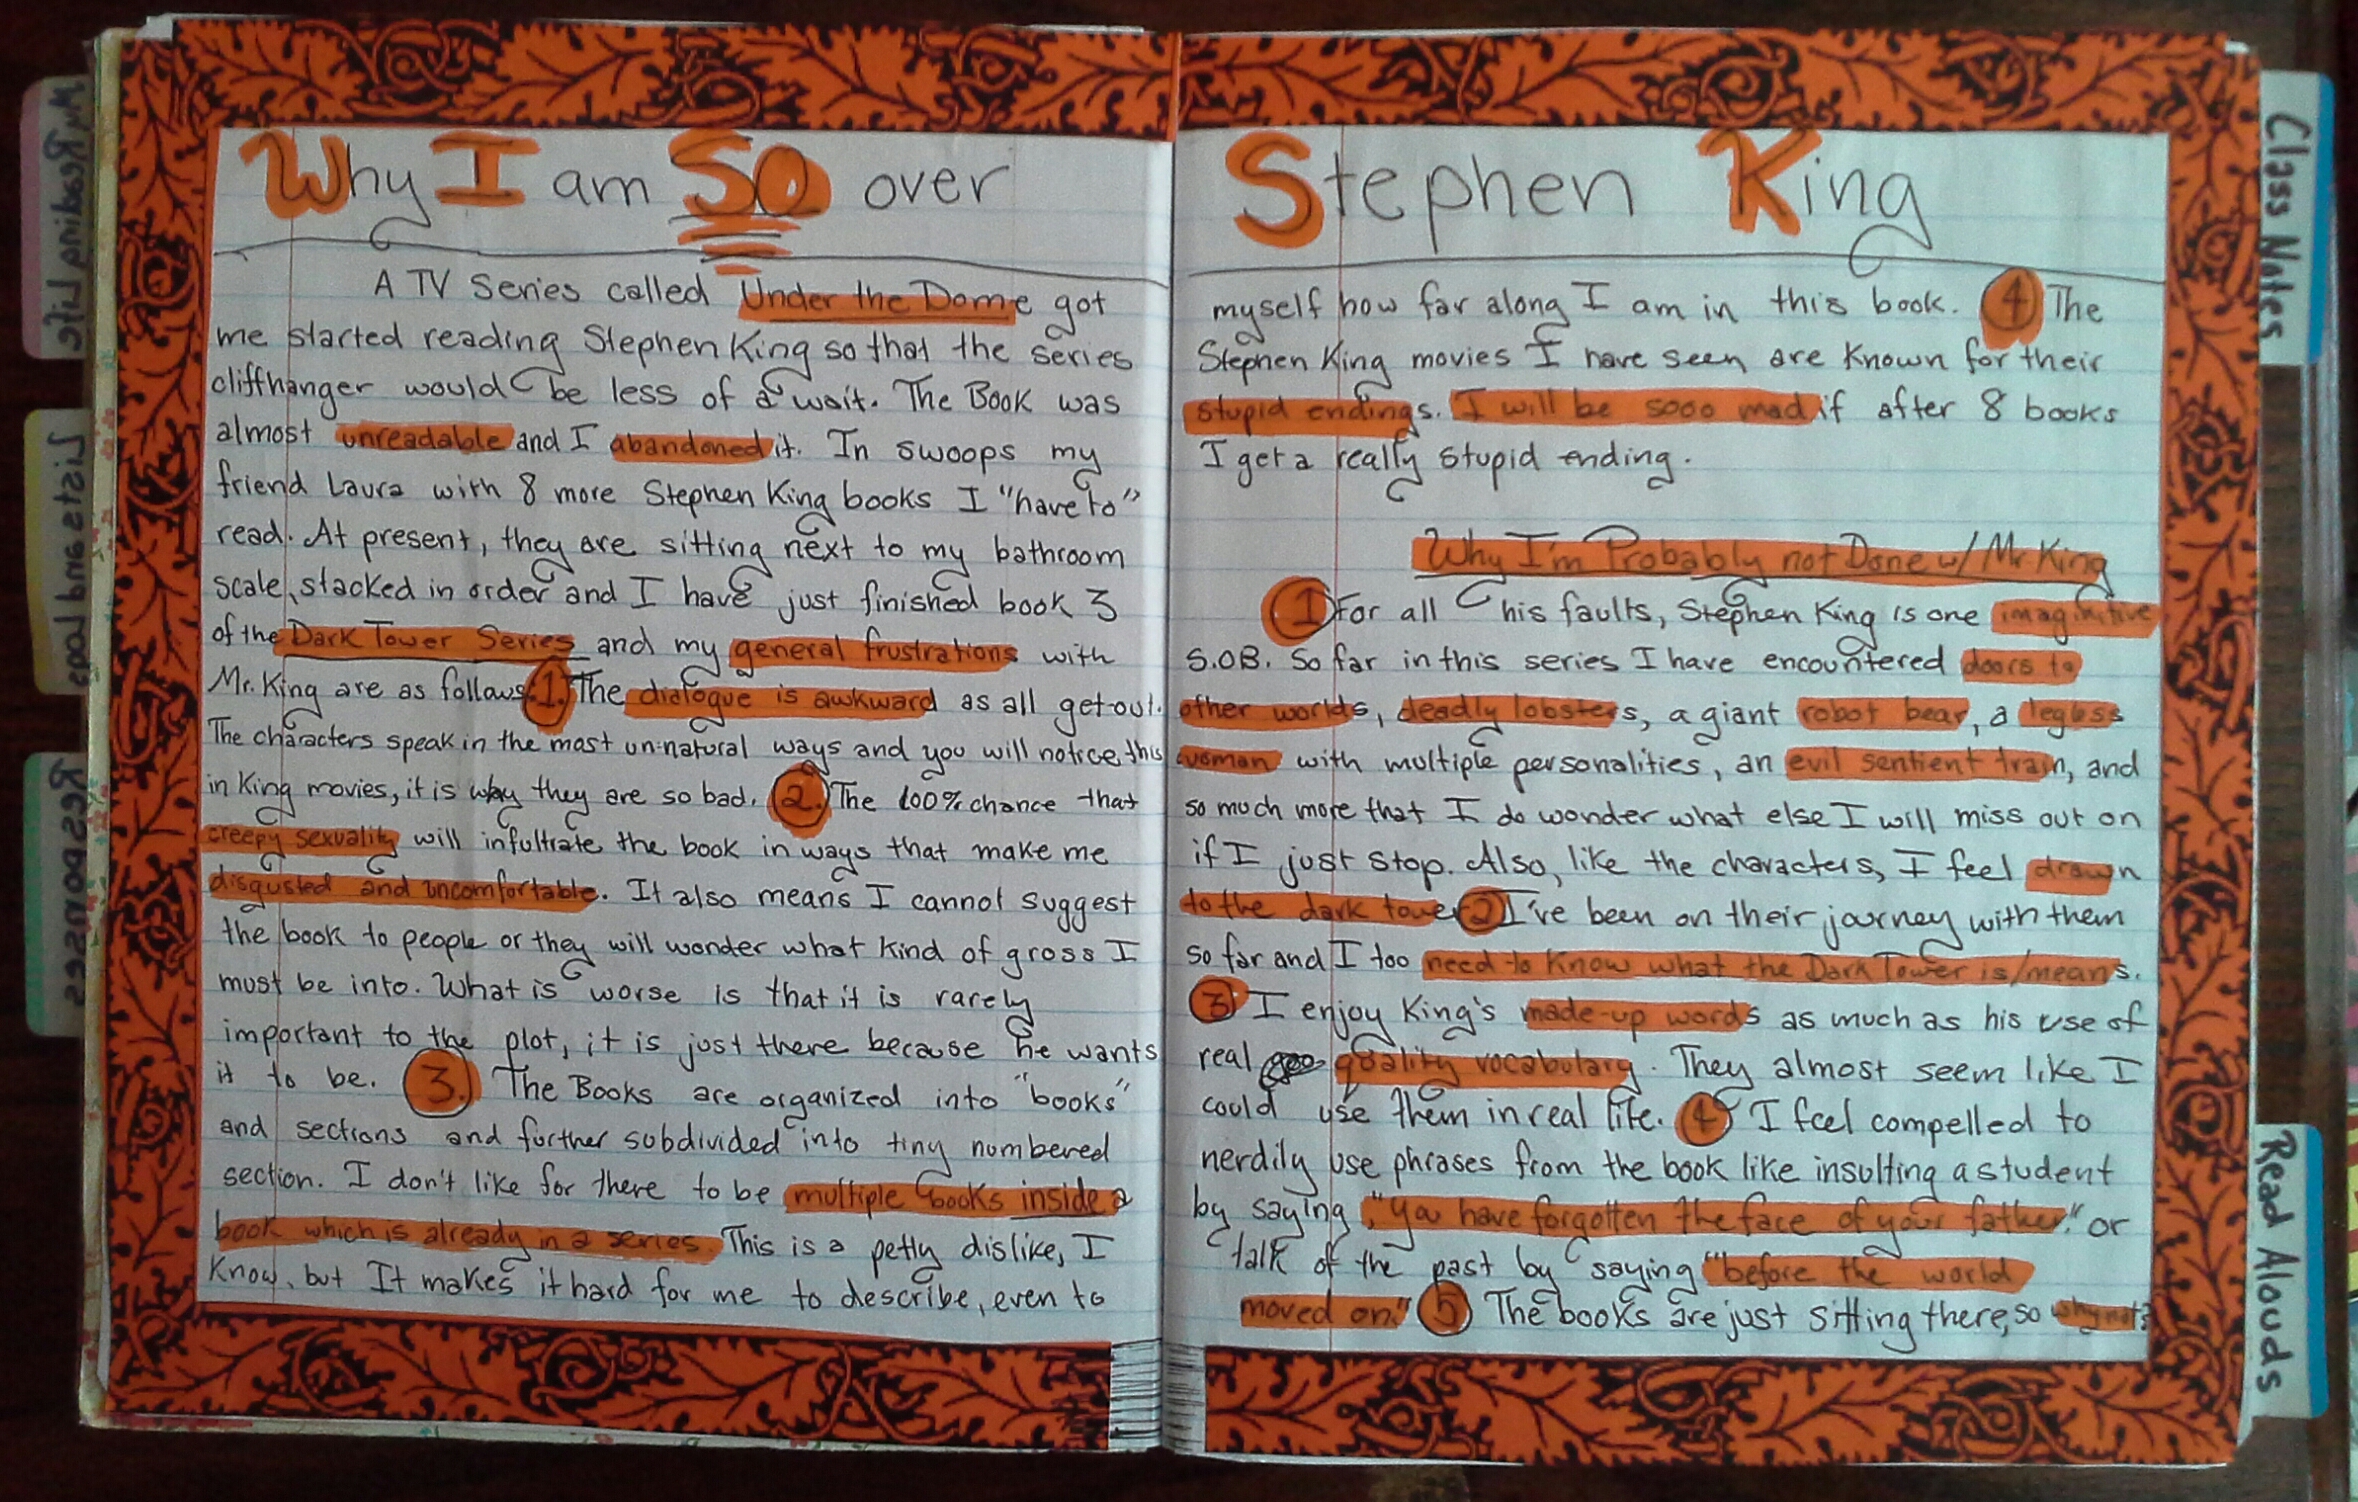 Why I am SO over
A TV Series called Under the Dome got
me started reading Stephen King so that the series
cliffhanger would be less of a wait. The Book was
almost unreadable and I abandoned it. In swoops my
friend Laura with 8 more Stephen King books I "have to"
read. At present, they are sitting next to my bathroom
scale, stacked in order and I have just finished book 3
of the Dark Tower Series and my general frustrations with
Mr. King are as follows. 1. The dialogue is awkward as all get-out.
The characters speak in the most un-natural ways and you will notice this
in King movies, it is why they are so bad. 2. The 100% chance that
creepy sexuality will infultrate the book in ways that make me
disgusted and uncomfortable. It also means I cannot suggest
the book to people or they will wonder what kind of gross I
must be into. What is worse is that it is rarely
important to the plot, it is just there because he wants
it to be. 3. The Books are organized into "books"
and sections and further subdivided into tiny numbered
section. I don't like for there to be multiple books inside a
book which is already in a series. This is a petty dislike, I
know, but It makes it hard for me to describe, even to
Stephen King
myself how far along I am in this book. 4 The
Stephen King movies I have seen are known for their
stupid endings. I will be sooo mad if after 8 books
I get a really stupid ending.
Why I'm Probably not Done w/ Mr. King
1 For all his faults, Stephen King is one imaginitive
S.O.B. So far in this series I have encountered doors to
other worlds, deadly lobsters, a giant robot bear, a legless
woman with multiple personalities, an evil sentient train, and
so much more that I do wonder what else I will miss out on
if I just stop. Also, like the characters, I feel drawn
to the dark tower 2 I've been on their journey with them
so far and I too need to know what the Dark Tower is/means.
3 I enjoy King's made-up words as much as his use of
real quality vocabulary. They almost seem like I
could use them in real life. 4 I feel compelled to
nerdily use phrases from the book like insulting a student
by saying, "You have forgotten the face of your father." or
talk of the past by saying "before the world
moved on." 5 The books are just sitting there, so why not?
My Reading Life
Lists and Logs
Responses
Class Notes
Read Alouds